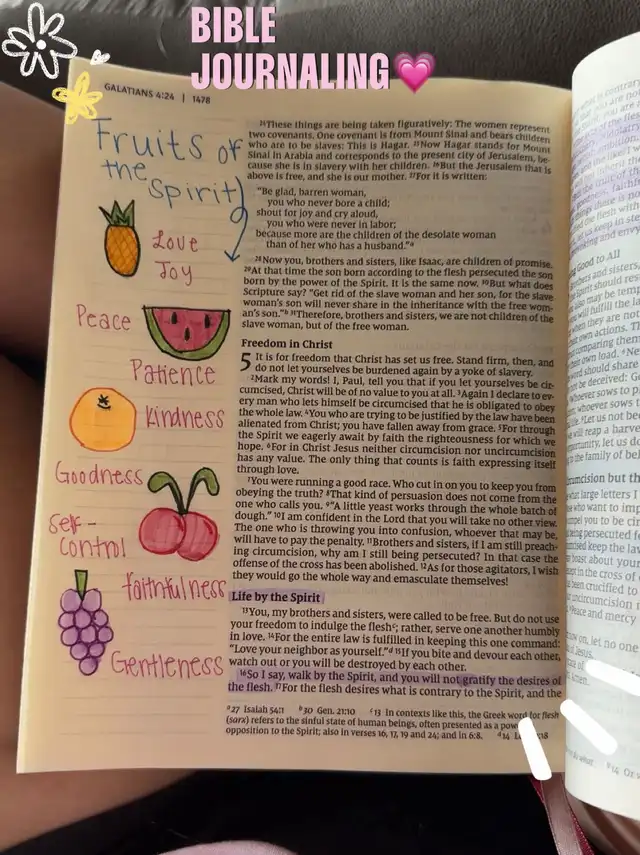 BIBLE
JOURNALING
GALATIANS 4:24 | 1478
Fruits of
the
Spirit
Love
Joy
Peace
Patience
Kindness
Goodness
Self-
Control
faithfulness
Gentleness
²⁴These things are being taken figuratively: The women represent
two covenants. One covenant is from Mount Sinai and bears children
who are to be slaves: This is Hagar. ²⁵Now Hagar stands for Mount
Sinai in Arabia and corresponds to the present city of Jerusalem, be-
cause she is in slavery with her children. ²⁶But the Jerusalem that is
above is free, and she is our mother. ²⁷For it is written:
"Be glad, barren woman,
you who never bore a child;
shout for joy and cry aloud,
you who were never in labor;
because more are the children of the desolate woman
than of her who has a husband."ᵃ
²⁸Now you, brothers and sisters, like Isaac, are children of promise.
²⁹At that time the son born according to the flesh persecuted the son
born by the power of the Spirit. It is the same now. ³⁰But what does
Scripture say? "Get rid of the slave woman and her son, for the slave
woman's son will never share in the inheritance with the free wom-
an's son."ᵇ ³¹Therefore, brothers and sisters, we are not children of the
slave woman, but of the free woman.
Freedom in Christ
5 It is for freedom that Christ has set us free. Stand firm, then, and
do not let yourselves be burdened again by a yoke of slavery.
²Mark my words! I, Paul, tell you that if you let yourselves be cir-
cumcised, Christ will be of no value to you at all. ³Again I declare to ev-
ery man who lets himself be circumcised that he is obligated to obey
the whole law. ⁴You who are trying to be justified by the law have been
alienated from Christ; you have fallen away from grace. ⁵For through
the Spirit we eagerly await by faith the righteousness for which we
hope. ⁶For in Christ Jesus neither circumcision nor uncircumcision
has any value. The only thing that counts is faith expressing itself
through love.
⁷You were running a good race. Who cut in on you to keep you from
obeying the truth? ⁸That kind of persuasion does not come from the
one who calls you. ⁹"A little yeast works through the whole batch of
dough." ¹⁰I am confident in the Lord that you will take no other view.
The one who is throwing you into confusion, whoever that may be,
will have to pay the penalty. ¹¹Brothers and sisters, if I am still preach-
ing circumcision, why am I still being persecuted? In that case the
offense of the cross has been abolished. ¹²As for those agitators, I wish
they would go the whole way and emasculate themselves!
Life by the Spirit
¹³You, my brothers and sisters, were called to be free. But do not use
your freedom to indulge the fleshᶜ; rather, serve one another humbly
in love. ¹⁴For the entire law is fulfilled in keeping this one command:
"Love your neighbor as yourself."ᵈ ¹⁵If you bite and devour each other,
watch out or you will be destroyed by each other.
¹⁶So I say, walk by the Spirit, and you will not gratify the desires of
the flesh. ¹⁷For the flesh desires what is contrary to the Spirit, and the
ᵃ27 Isaiah 54:1 ᵇ30 Gen. 21:10 ᶜ13 In contexts like this, the Greek word for flesh
(sarx) refers to the sinful state of human beings, often presented as a
opposition to the Spirit; also in verses 16, 17, 19 and 24; and in 6:8. ᵈ14